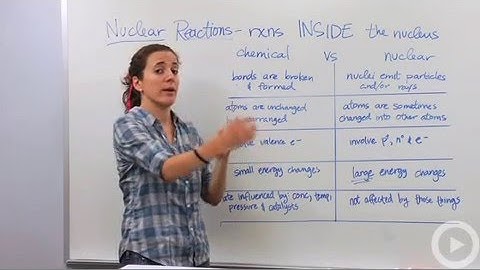 Nuclear Reactions - rxns INSIDE the nucleus
chemical vs nuclear
bonds are broken
& formed
nuclei emit particles
and/or rays
atoms are unchanged
rearranged
atoms are sometimes
changed into other atoms
valence e⁻
involve p⁺, n° & e⁻
small energy changes
large energy changes
are influenced by: conc, temp,
pressure & catalysts
not affected by those things